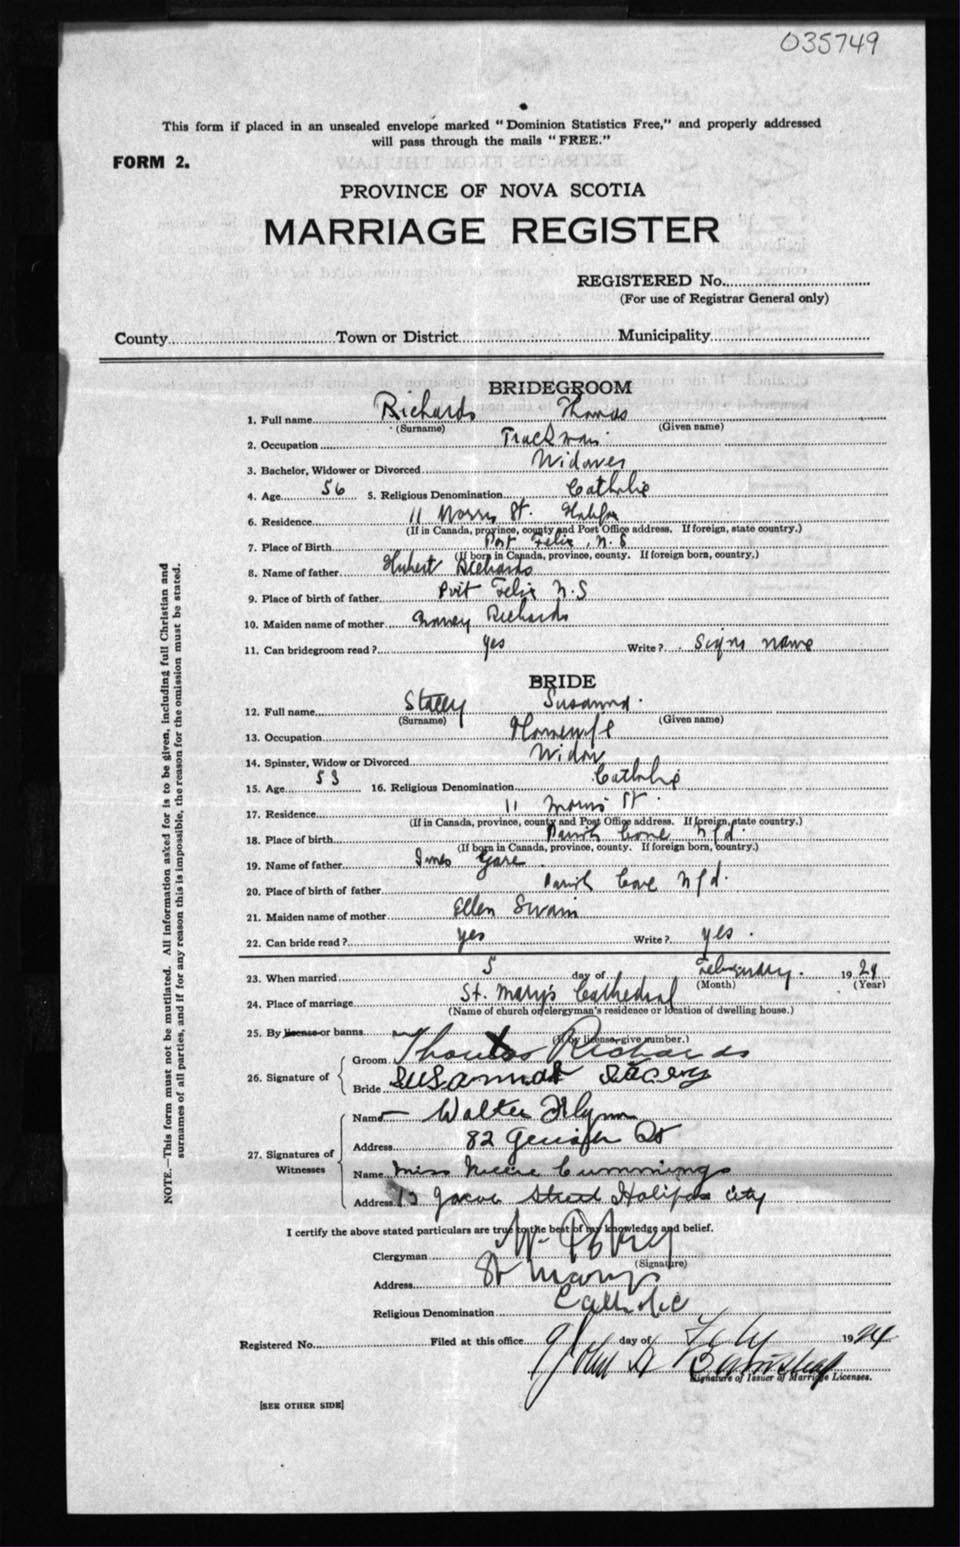 035749
This form if placed in an unsealed envelope marked "Dominion Statistics Free," and properly addressed
will pass through the mails "FREE."
FORM 2.
PROVINCE OF NOVA SCOTIA
MARRIAGE REGISTER
REGISTERED No.
(For use of Registrar General only)
County Town or District Municipality
BRIDEGROOM
1. Full name Richards Thomas
(Surname) (Given name)
2. Occupation Trackman
3. Bachelor, Widower or Divorced Widower
4. Age 56 5. Religious Denomination Catholic
6. Residence 11 Morris St. Halifax
(If in Canada, province, county and Post Office address. If foreign, state country.)
7. Place of Birth Port Felix, N.S
(If born in Canada, province, county. If foreign born, country.)
8. Name of father Hubert Richards
9. Place of birth of father Port Felix N.S
10. Maiden name of mother Richards
11. Can bridegroom read? yes Write? Signs name
BRIDE
12. Full name Stacey Susanna
(Surname) (Given name)
13. Occupation Housewife
14. Spinster, Widow or Divorced Widow
15. Age 53 16. Religious Denomination Catholic
17. Residence 11 Morris St.
(If in Canada, province, county and Post Office address. If foreign, state country.)
18. Place of birth Parish Cove Nfd.
(If born in Canada, province, county. If foreign born, country.)
19. Name of father
20. Place of birth of father Parish Cove Nfd.
21. Maiden name of mother Ellen Swain
22. Can bride read? yes Write? yes.
23. When married 5 day of February. 1924
(Month) (Year)
24. Place of marriage St. Mary's Cathedral
(Name of church or clergyman's residence or location of dwelling house.)
25. By license or banns
(If by license give number.)
26. Signature of Groom Thomas Richards
Bride Susannah Stacey
27. Signatures of Witnesses Name Walter Flynn
Address 82 St
Name Miss Cummings
Address 13 Jacob Street Halifax City
I certify the above stated particulars are true to the best of my knowledge and belief.
Clergyman
(Signature)
Address St Marys
Religious Denomination Catholic
Registered No. Filed at this office 9 day of Feby 1924
John
Signature of Issuer of Marriage Licenses.
[SEE OTHER SIDE]
NOTE.—This form must not be mutilated. All information asked for is to be given, including full Christian and
surnames of all parties, and if for any reason this is impossible, the reason for the omission must be stated.